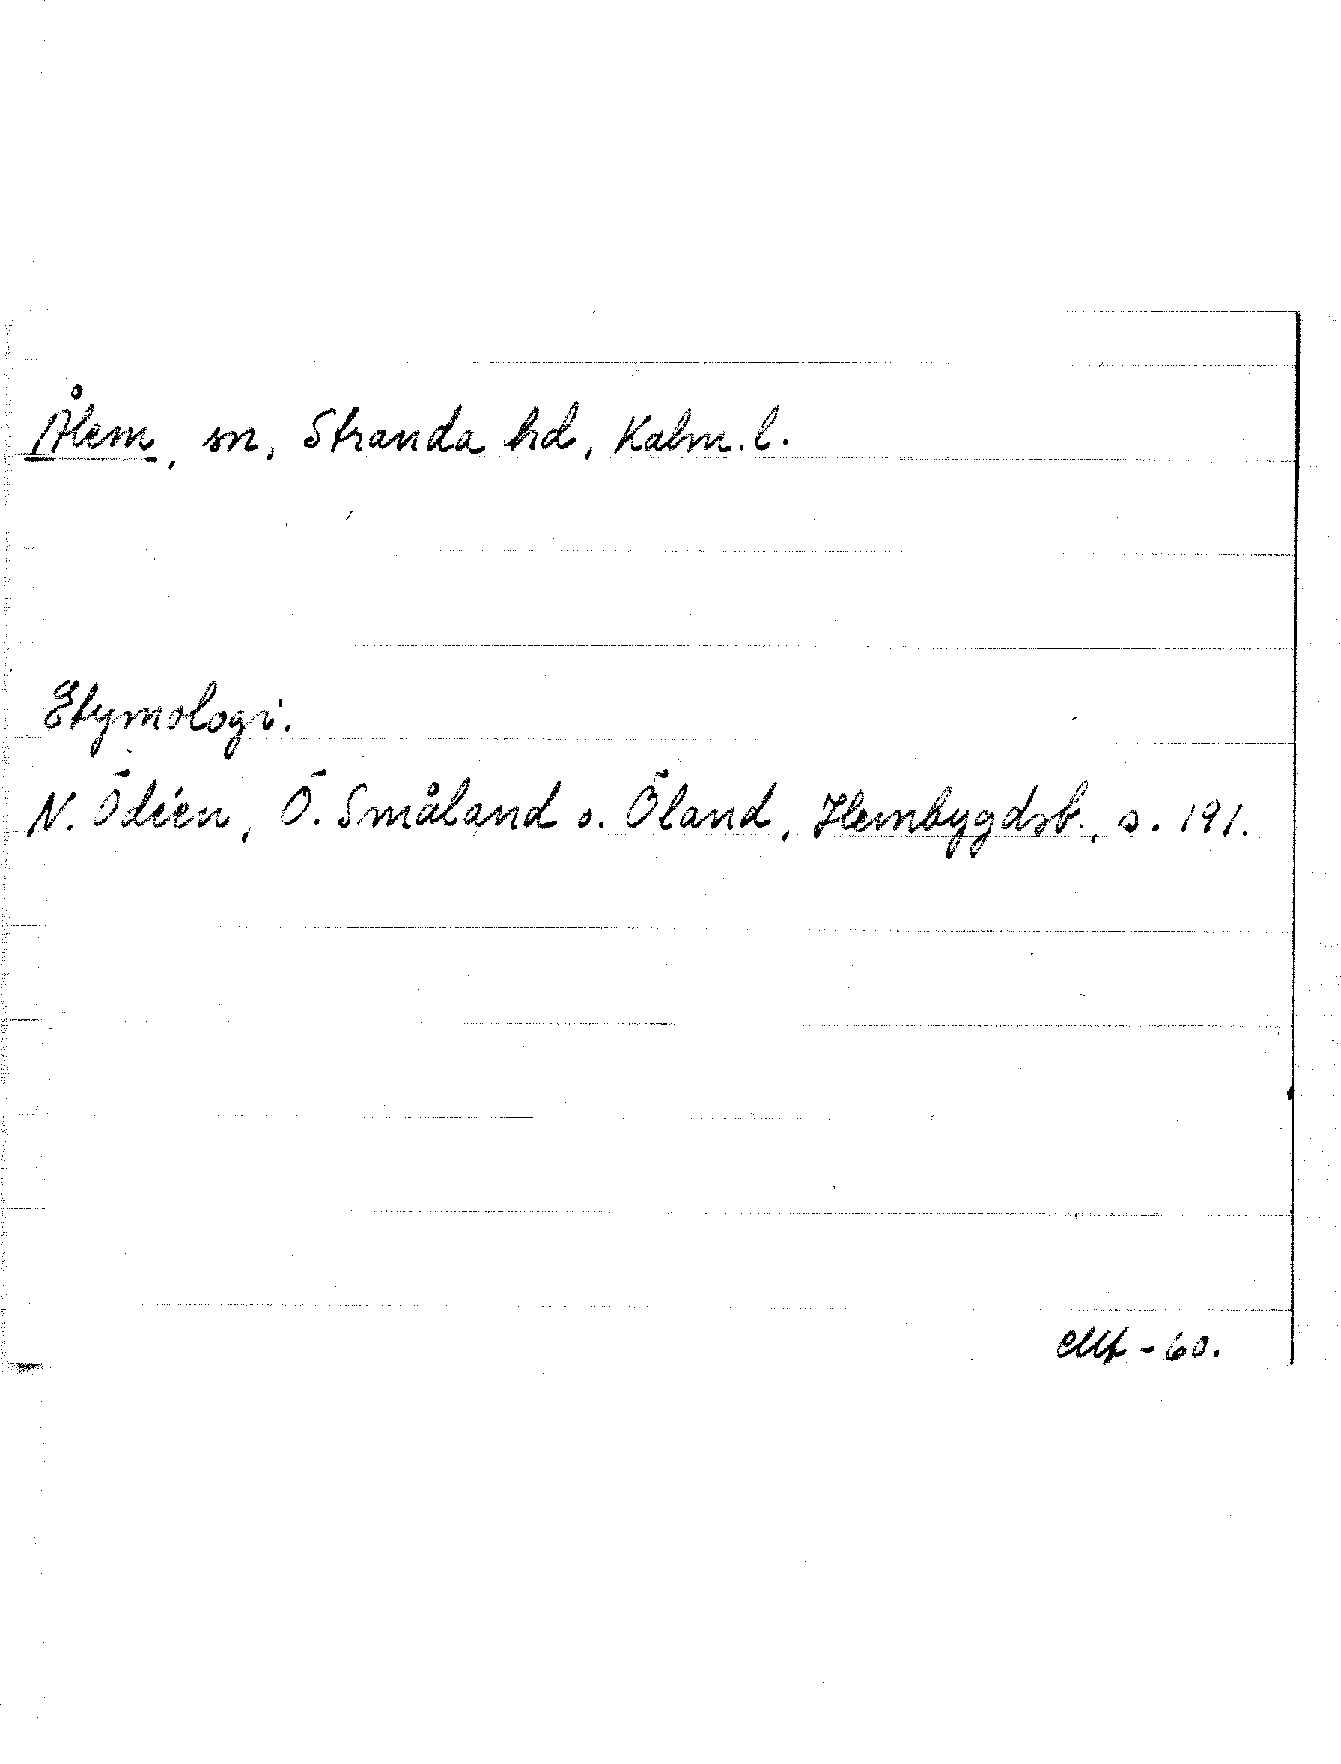 Ålem, sn, Stranda hd, Kalm. l.
Etymologi.
N. Ödéen, Ö. Småland o. Öland, Hembygdsb., s. 191.
-60.